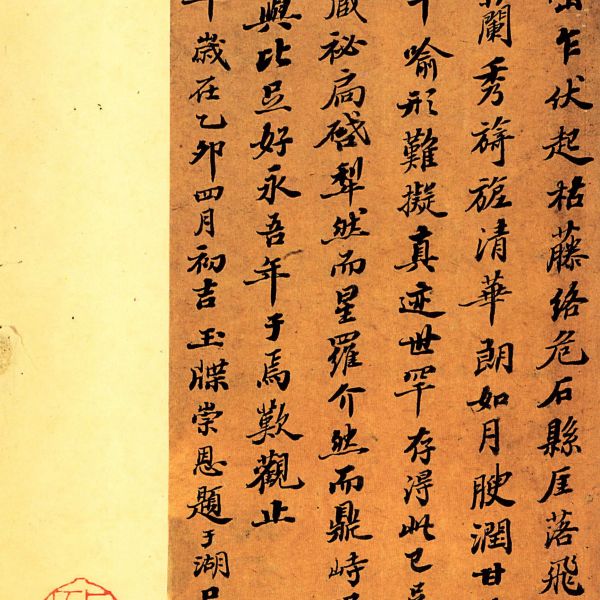 乍伏起枯藤络危石縣厓落飛
蘭秀旖旎清華朗如月腴潤甘
喻形難擬真迹世罕存得此已
藏祕扃啓犁然而星羅介然而鼎峙
與比忌好永吾年于焉歎觀止
歲在乙卯四月初吉玉牒崇恩題于湖